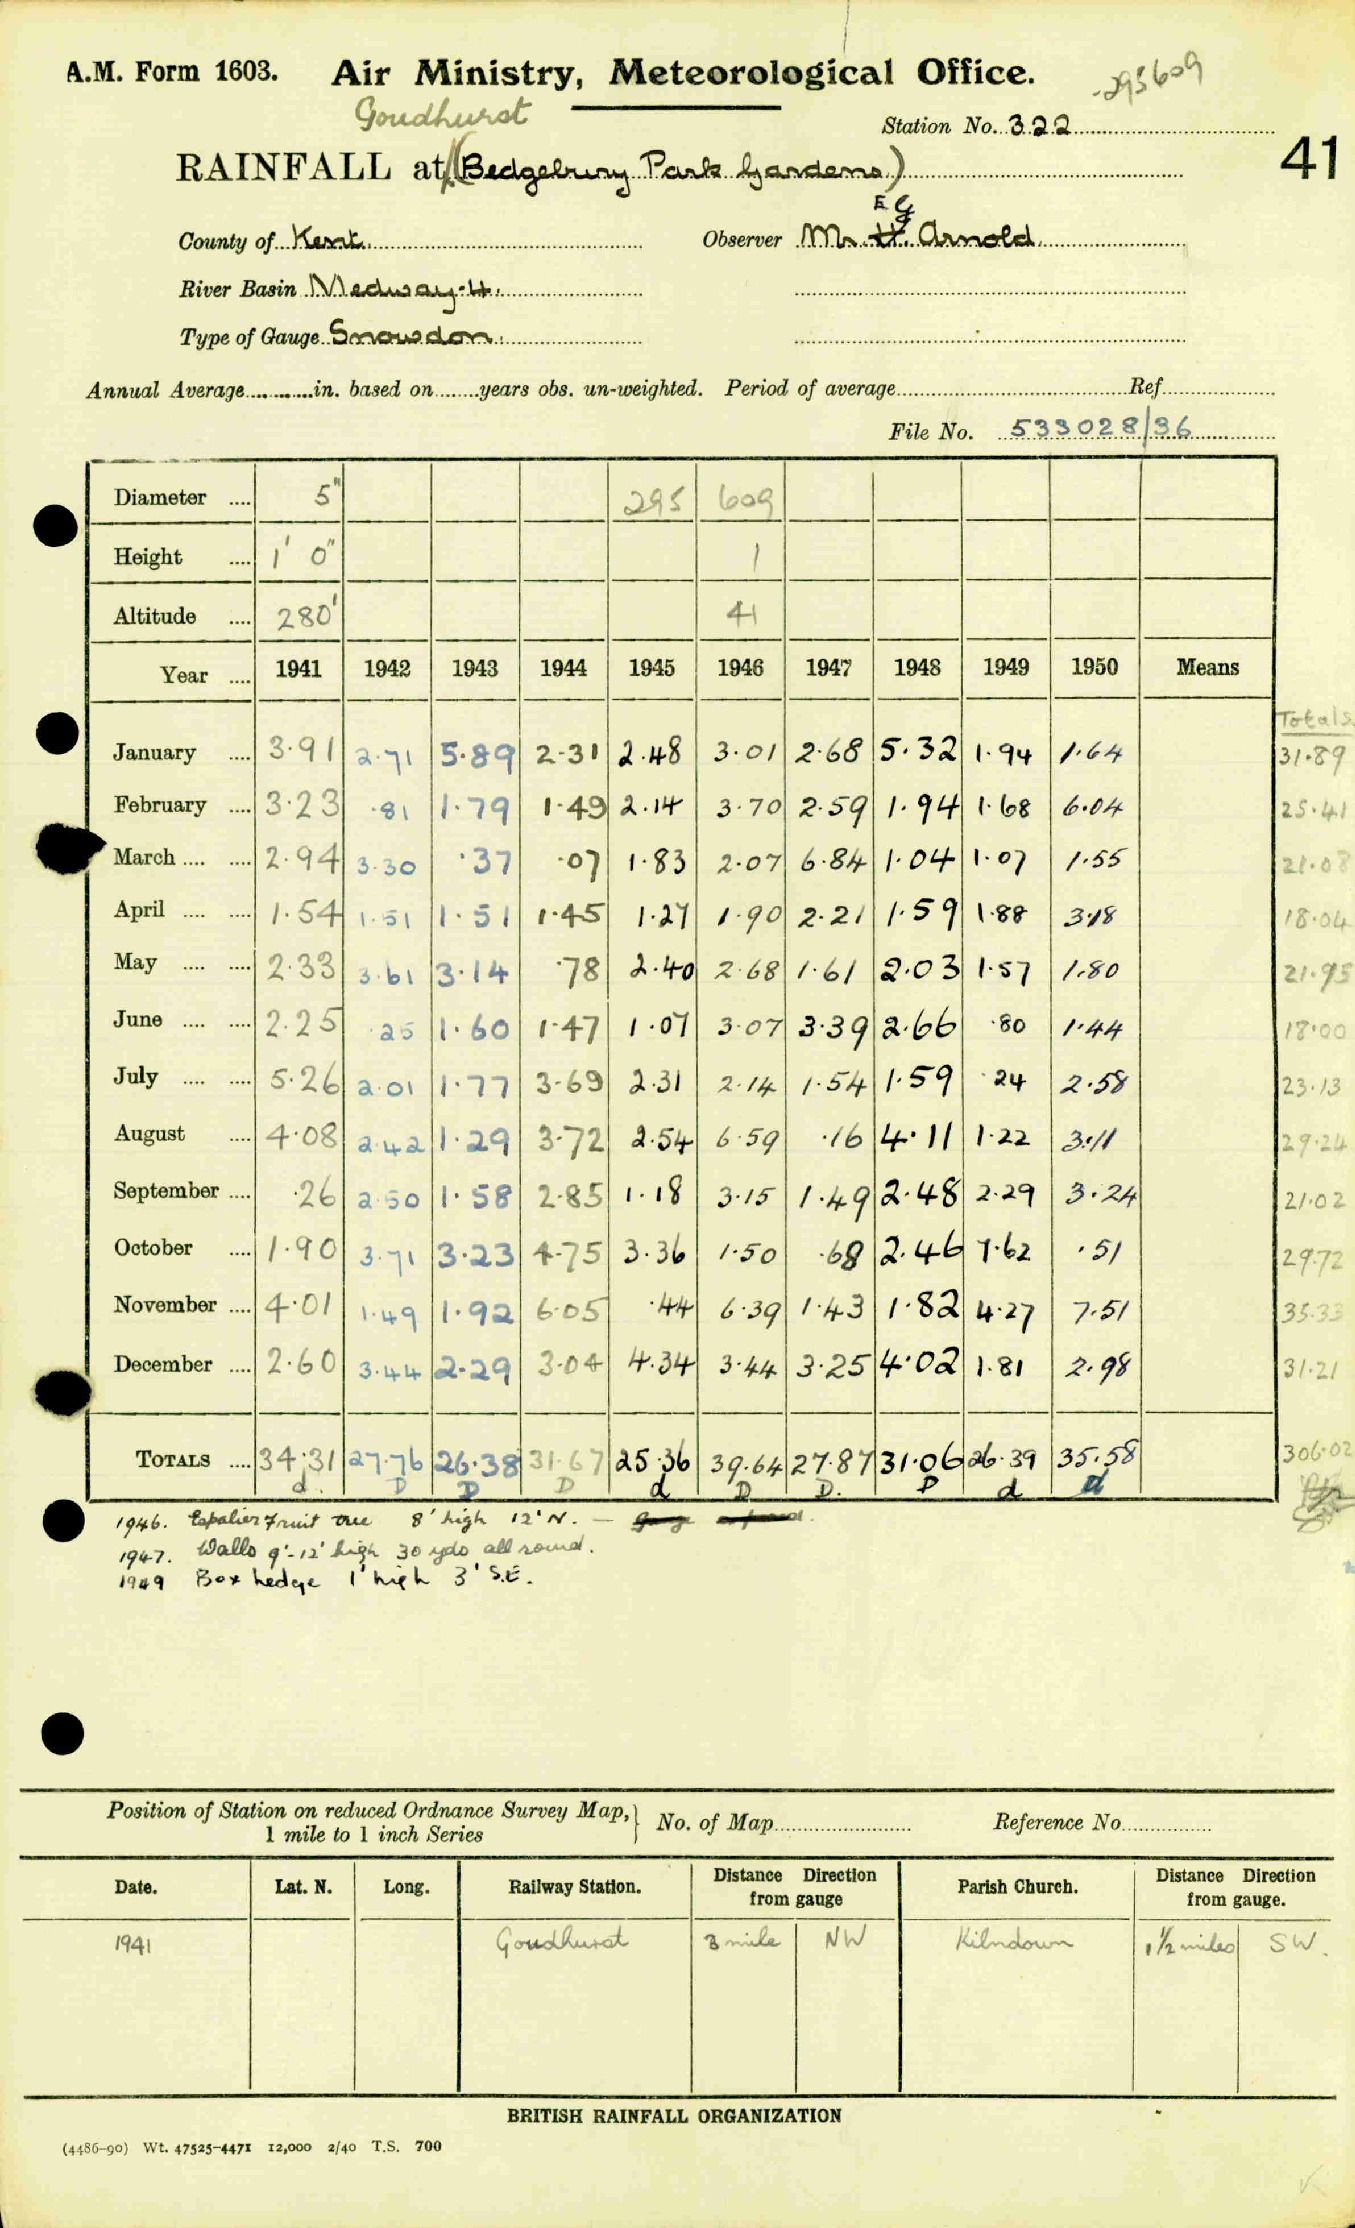 A.M. Form 1603. Air Ministry, Meteorological Office. 295609
Goudhurst
Station No. 322
41
RAINFALL at (Bedgebury Park Gardens)
E G
County of Kent. Observer Mr. H. Arnold.
River Basin Medway. 4.
Type of Gauge Snowdon.
Annual Average............in. based on........years obs. un-weighted. Period of average........ Ref........
File No. 533028/36
Diameter .... 5" 295 609
Height .... 1' 0" 1
Altitude .... 280' 41
Year .... 1941 1942 1943 1944 1945 1946 1947 1948 1949 1950 Means
Totals
January .... 3·91 2·71 5·89 2·31 2·48 3·01 2·68 5·32 1·94 1·64 31·89
February .... 3·23 ·81 1·79 1·49 2·14 3·70 2·59 1·94 1·68 6·04 25·41
March .... .... 2·94 3·30 ·37 ·07 1·83 2·07 6·84 1·04 1·07 1·55 21·08
April .... .... 1·54 1·51 1·51 1·45 1·27 1·90 2·21 1·59 1·88 3·18 18·04
May .... .... 2·33 3·61 3·14 ·78 2·40 2·68 1·61 2·03 1·57 1·80 21·95
June .... .... 2·25 ·25 1·60 1·47 1·07 3·07 3·39 2·66 ·80 1·44 18·00
July .... .... 5·26 2·01 1·77 3·69 2·31 2·14 1·54 1·59 ·24 2·58 23·13
August .... 4·08 2·42 1·29 3·72 2·54 6·59 ·16 4·11 1·22 3·11 29·24
September .... ·26 2·50 1·58 2·85 1·18 3·15 1·49 2·48 2·29 3·24 21·02
October .... 1·90 3·71 3·23 4·75 3·36 1·50 ·68 2·46 7·62 ·51 29·72
November .... 4·01 1·49 1·92 6·05 ·44 6·39 1·43 1·82 4·27 7·51 35·33
December .... 2·60 3·44 2·29 3·04 4·34 3·44 3·25 4·02 1·81 2·98 31·21
TOTALS .... 34·31 27·76 26·38 31·67 25·36 39·64 27·87 31·06 26·39 35·58 306·02
d. D D D d D D. D d d
1946. Espalier Fruit tree 8' high 12' N. —
1947. Walls 9'-12' high 30 yds all round.
1949 Box hedge 1' high 3' S.E.
Position of Station on reduced Ordnance Survey Map, 1 mile to 1 inch Series } No. of Map........ Reference No........
Date. Lat. N. Long. Railway Station. Distance Direction from gauge Parish Church. Distance Direction from gauge.
1941 Goudhurst 3 mile NW Kilndown 1½ miles SW.
BRITISH RAINFALL ORGANIZATION
(4486-90) Wt. 47525-4471 12,000 2/40 T.S. 700